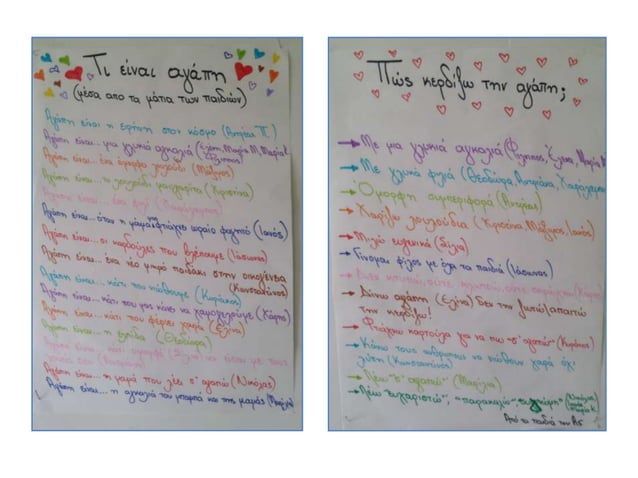 Τι είναι αγάπη
(μέσα απο τα μάτια των παιδιών)
Αγάπη είναι η ειρήνη στον κόσμο (Αντρέας Π.)
Αγάπη είναι... μια γλυκιά αγκαλιά (Ελένη, Μαρία Μ, Μαρία Κ
Αγάπη είναι... ένα όμορφο λουλούδι (Μάξιμος)
Αγάπη είναι... το λουλούδι μαργαρίτα (Χριστίνα)
Αγάπη είναι... ένα φιλί
Αγάπη είναι... όταν η μαμά μου φτιάχνει ωραίο φαγητό (Ιανός)
Αγάπη είναι... οι καρδούλες που βλέπουμε (Ιάσωνας)
Αγάπη είναι... ένα νέο μικρό παιδάκι στην οικογένεια
(Κωνσταντίνος)
Αγάπη είναι... κάτι που νιώθουμε (Κυριάκος)
Αγάπη είναι... κάτι που μας κάνει να χαμογελούμε (Χάρης)
Αγάπη είναι... κάτι που φέρνει χαρά (Ελίνα)
Αγάπη είναι... η ελπίδα (Θεοδώρα)
Αγάπη είναι... να είσαι με τους
Αγάπη είναι... η μαμά που λέει σ' αγαπώ (Νικόλας)
Αγάπη είναι... η αγκαλιά του μπαμπά και της μαμάς (Μαρίλια)
Πώς κερδίζω την αγάπη;
Με μια γλυκιά αγκαλιά (Φίλιππος, Ελένη, Μαρία Μ
Με γλυκά φιλιά (Θεοδώρα, Αντριάνα, Χαράλαμπος
Όμορφη συμπεριφορά (Αντρέας)
Χαρίζω λουλούδια (Χριστίνα, Μάξιμος, Ιανός)
Μιλώ ευγενικά (Σίλια)
Γίνομαι φίλος με όλα τα παιδιά (Ιάσωνας)
Δίνω αγάπη (Ελίνα) δεν την ζητώ/απαιτώ
την κερδίζω!
Φτιάχνω καρτούλα για να πω "σ' αγαπώ" (Κυριάκος)
Κάνω τους ανθρώπους να νιώθουν χαρά όχι
λύπη (Κωνσταντίνος)
Λέω "σ' αγαπώ" (Μαρίλια)
Λέω "ευχαριστώ", "παρακαλώ" "συγνώμη" (Νικόλας
Από τα παιδιά του Α5